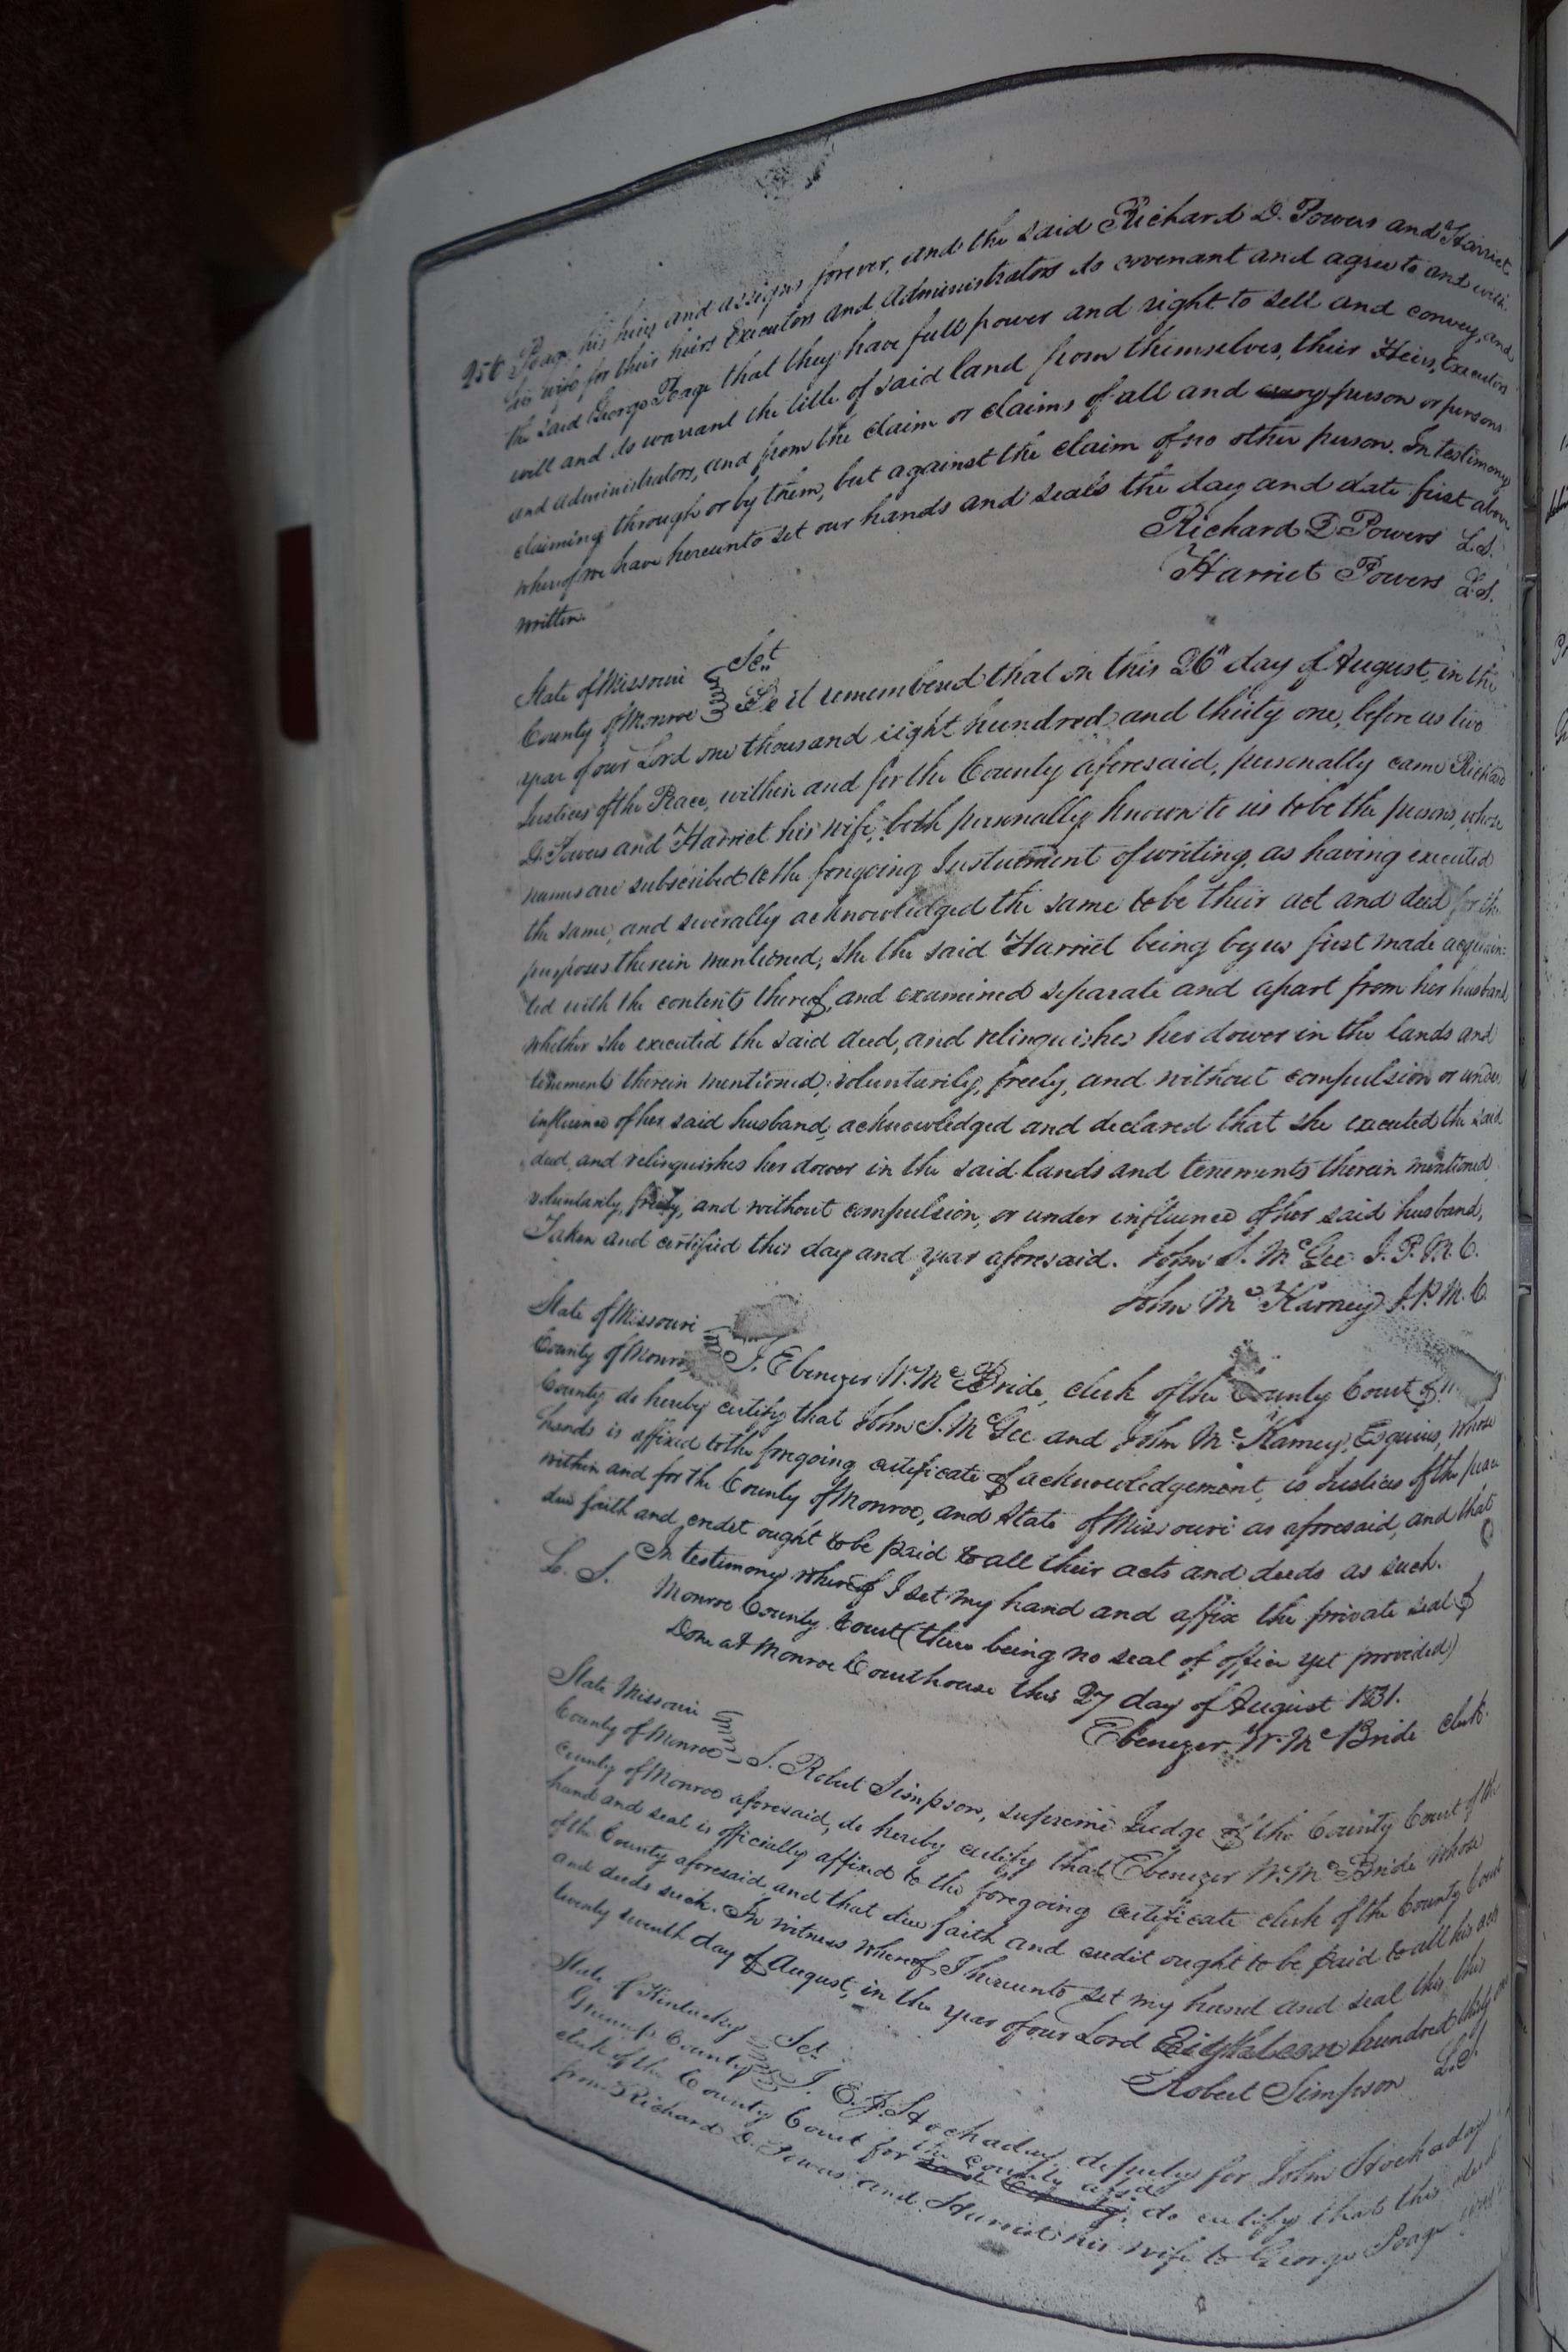 256 Poage, his heirs and assigns forever, and the said Richard D. Powers and Harriet
his wife for their heirs Executors and Administrators do covenant and agree to and with
the said George Poage that they have full power and right to sell and convey, and
will and do warrant the title of said land from themselves, their Heirs, Executors
and Administrators, and from the claim or claims of all and every person or persons
claiming through or by them, but against the claim of no other person. In testimony
whereof we have hereunto set our hands and seals the day and date first above
written.
Richard D Powers L.S.
Harriet Powers L.S.
State of Missouri Sct
County of Monroe Be it remembered that on this 26th day of August, in the
year of our Lord one thousand eight hundred and thirty one, before us two
Justices of the Peace, within and for the County aforesaid, personally came Richard
D. Powers and Harriet his wife, both personally known to us to be the persons, whose
names are subscribed to the foregoing Instument of writing, as having executed
the same, and severally acknowledged the same to be their act and deed for the
purposes therein mentioned, she the said Harriet being by us first made acquain-
ted with the contents thereof, and examined separate and apart from her husband
whether she executed the said deed, and relinquishes her dower in the lands and
tenements therein mentioned, voluntarily, freely, and without compulsion or under
influence of her said husband, acknowledged and declared that she executed the said
deed, and relinquishes her dower in the said lands and tenements therein mentioned
voluntarily, freely, and without compulsion, or under influence of her said husband,
Taken and certified this day and year aforesaid. John S. McGee J. P. M. C.
John McKamey J. P. M. C.
State of Missouri
County of Monroe I, Ebenezer W. McBride, clerk of the County Court of
County do hereby certify that John S. McGee and John McKamey, Esquires, whose
hands is affixed to the foregoing certificate of acknowledgement, is Justices of the peace
within and for the County of Monroe, and State of Missouri as aforesaid, and that
due faith and credit ought to be paid to all their acts and deeds as such.
L. S. In testimony whereof I set my hand and affix the private seal of
Monroe County Court (there being no seal of office yet provided)
Done at Monroe Courthouse this 27 day of August 1831.
Ebenezer W. McBride clerk.
State Missouri
County of Monroe I. Robert Simpson, supreme Judge of the County Court of the
County of Monroe aforesaid, do hereby certify that Ebenezer W. McBride whose
hand and seal is officially affixed to the foregoing certificate clerk of the County Court
of the County aforesaid, and that due faith and credit ought to be paid to all his acts
and deeds such. In witness whereof I hereunto set my hand and seal this this
twenty seventh day of August, in the year of our Lord Eighteen hundred thirty one
Robert Simpson L.S.
State of Kentucky Sct.
Greenup County I. E. F. Hockaday deputy for John Hockaday
clerk of the County Court for said County the county afsd do certify that this deed
from Richard D. Powers and Harriet his wife to George Poage